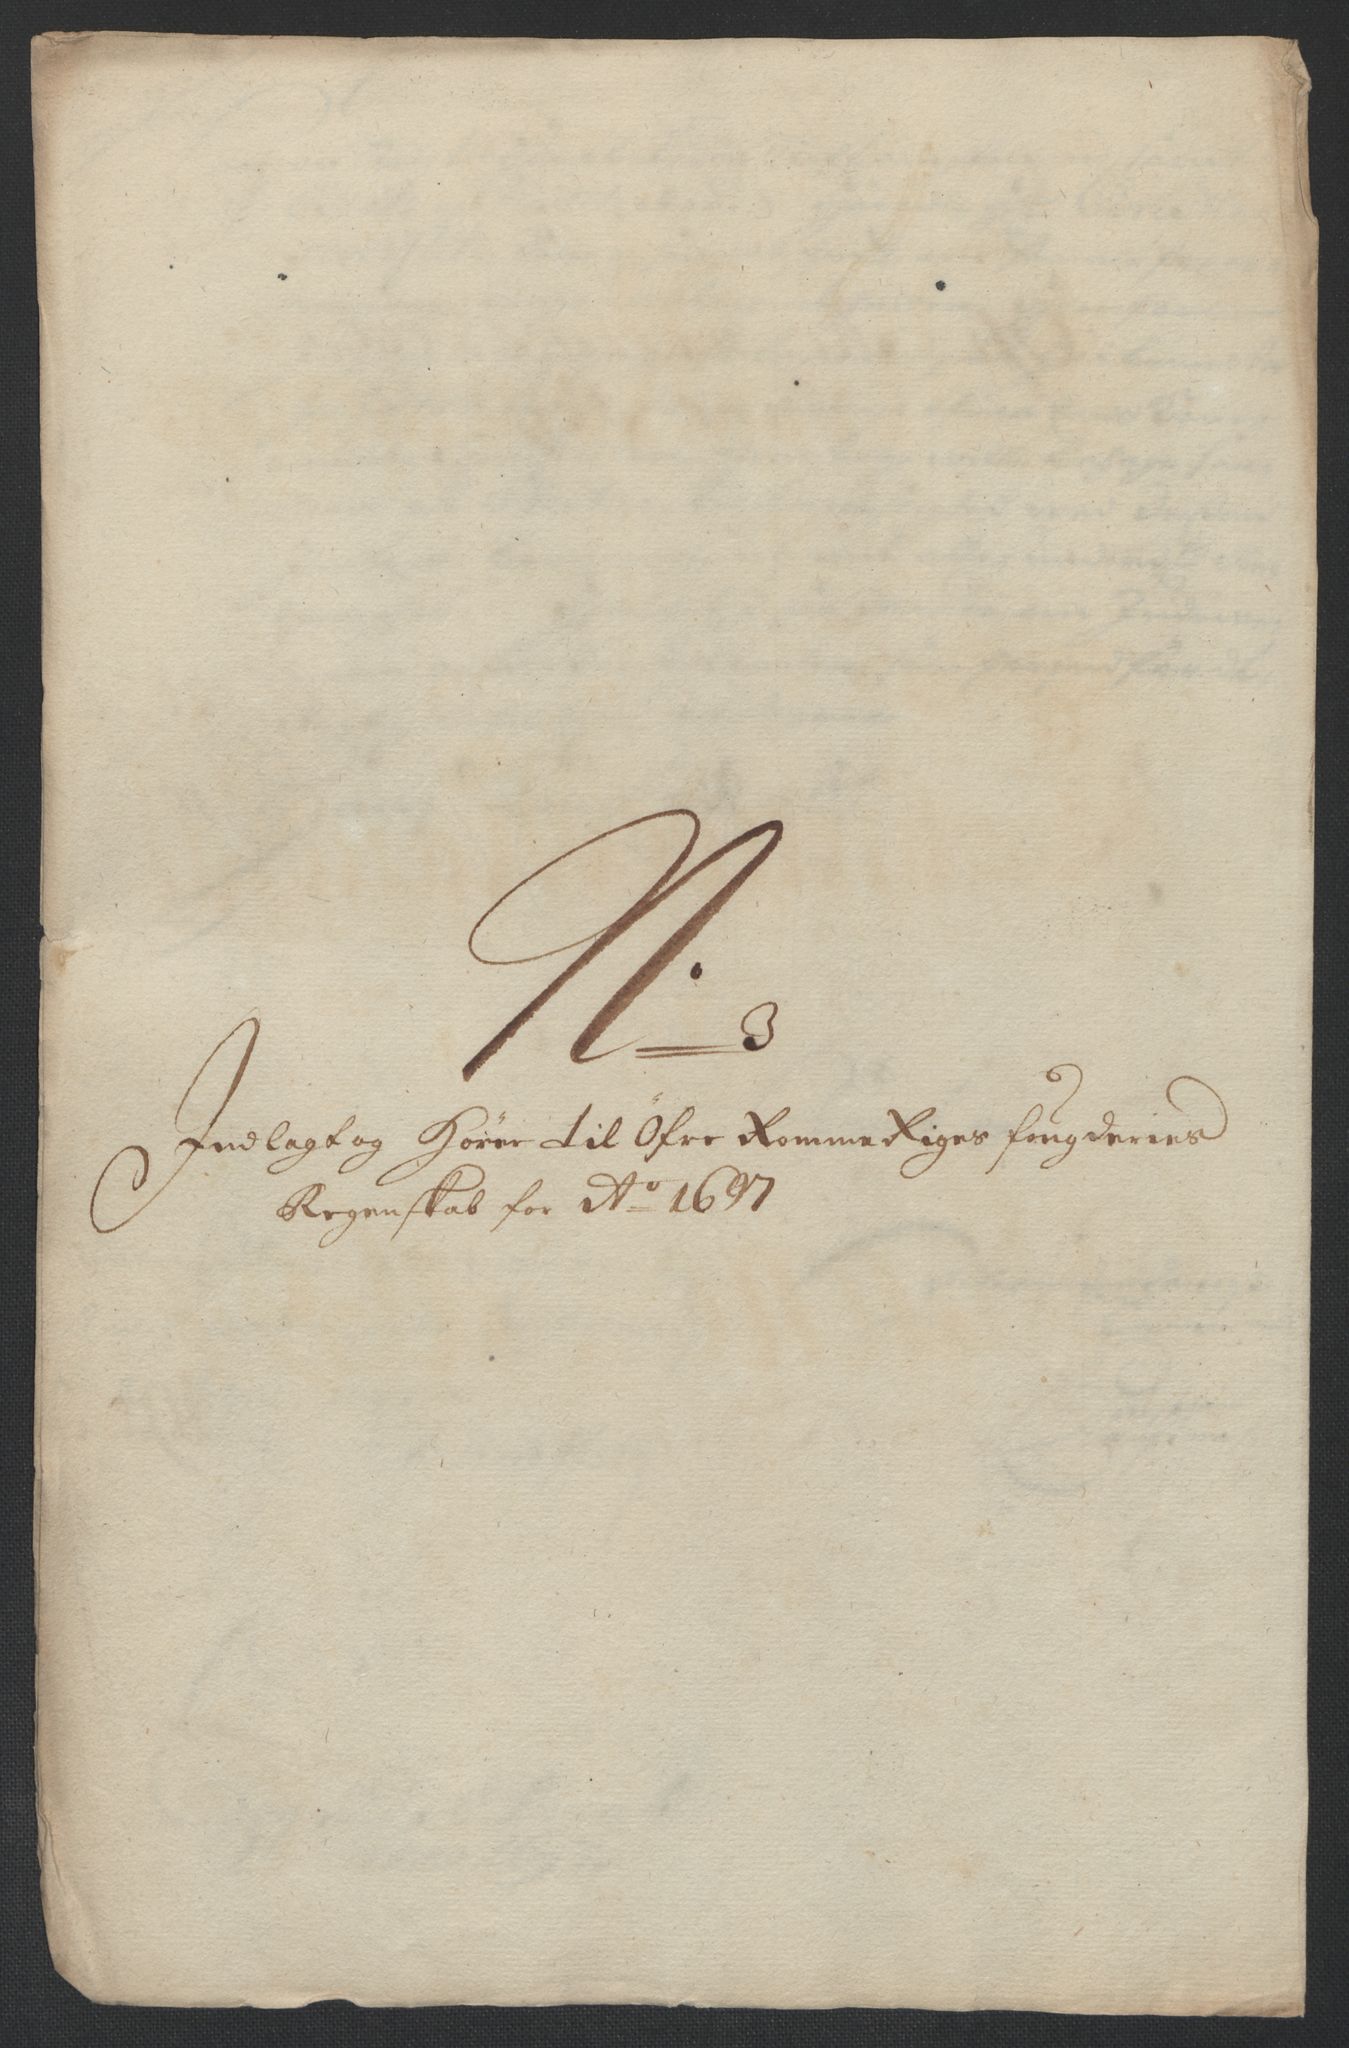 N. 3
Indlagt og Hörer til Öfre RommeRiges fougderies
Regenskab for Ao 1697